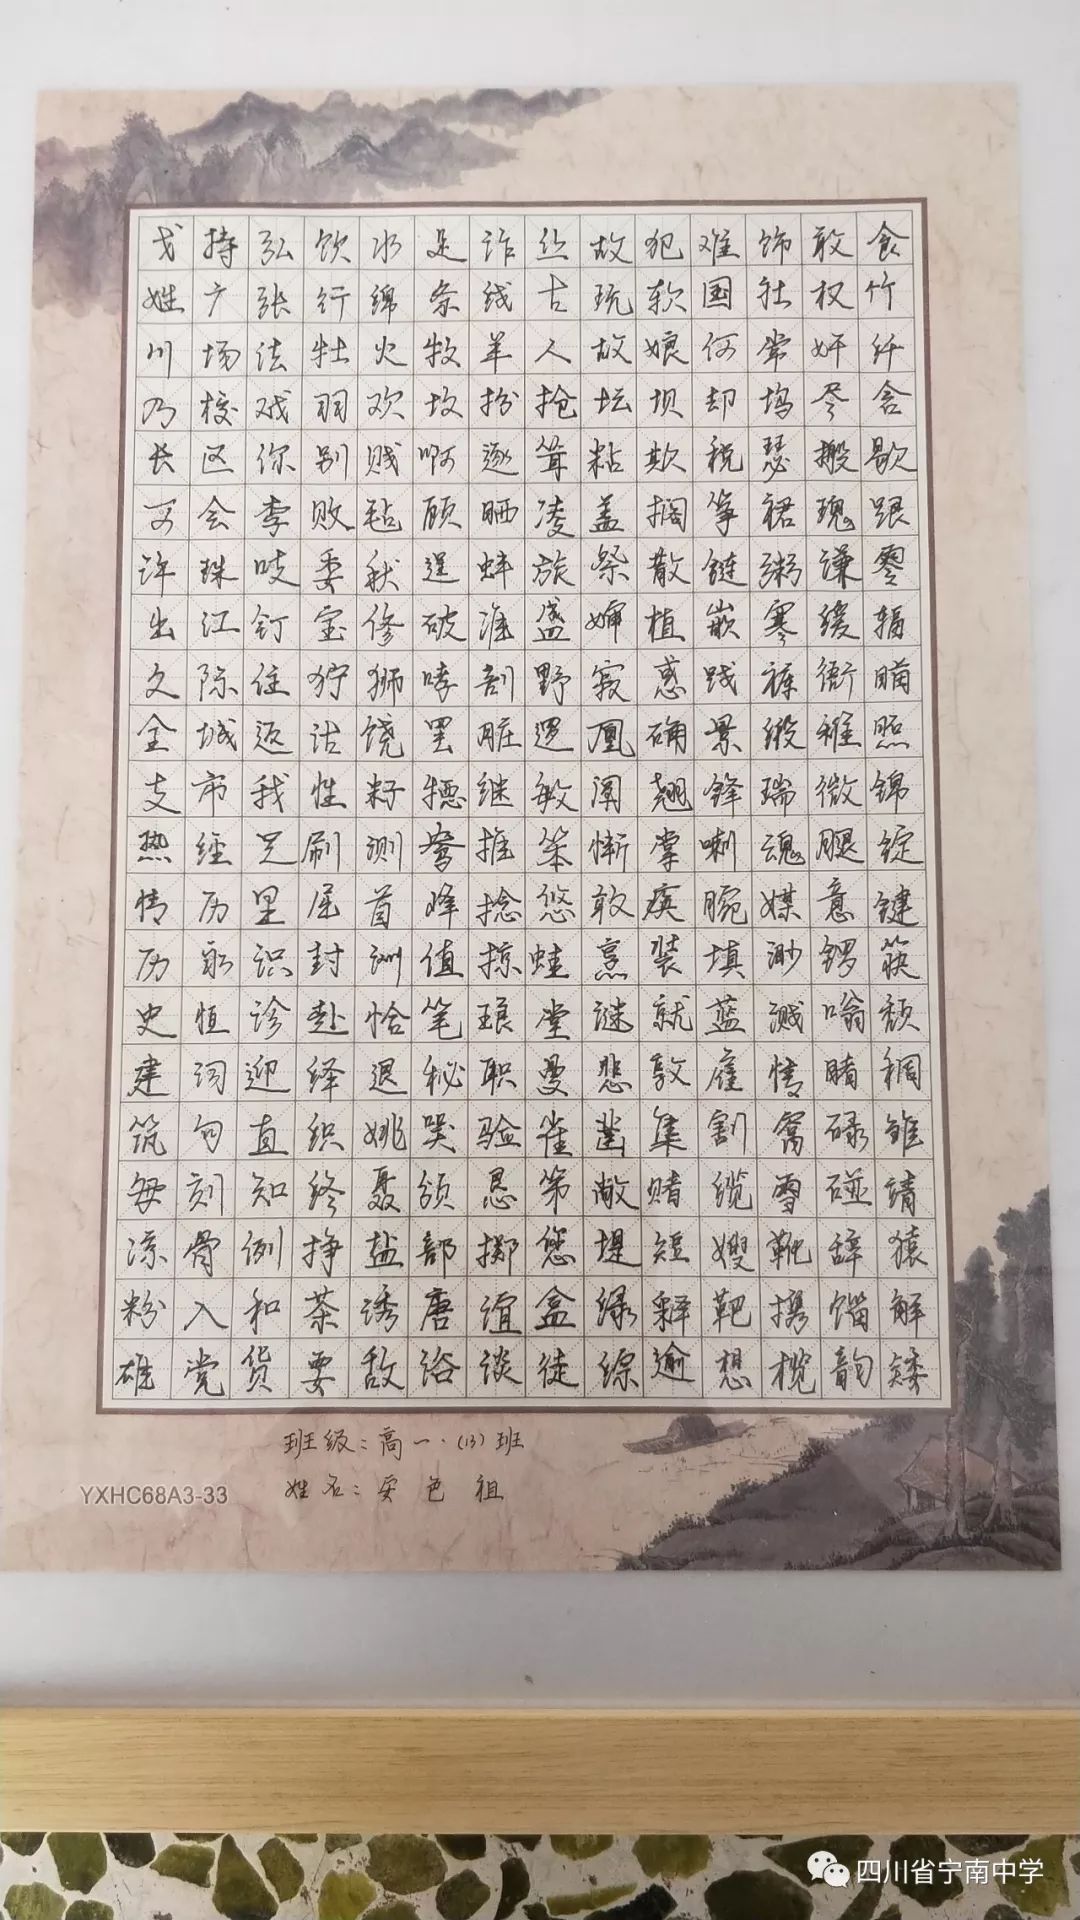 戈持弘饮水足诈丝故犯难饰敢食
姓广张行绵条线古玩软国社权竹
川场法牡火牧羊人故娘何常奸纤
乃校戏羽欢坟扮抢坛坝却坞含
长区你别贱啊逐耸粘欺税瑟搬歇
会李败毡顾晒凌盖搁筝裙瑰跟
许珠吱委秋逞蚌旅祭散链粥谦零
出江钉宝修破准盛婶植嵌寒缓辐
文际住狞狮哮剖野寂惑践裤衙
金城返沽饶罢脏遇凰确景缎稚照
支市我性籽穗继敏阐翘锋瑞微锦
热经足刷测鸯推笨惭掌喇魂腿锭
情历里屈首峰捻悠敢痪腕媒意键
历永识封训值掠蛙烹装填渺锣筷
史恒诊赴恰笔琅堂谜就蓝溅嗡颓
建词迎绎退秘职曼悲敦雇情睹稠
筑句直织姚哭验雀凿集割窝碌雏
每刻知终聂颌恳第敞赌缆雪碰靖
凉骨例挣盐部掷您堤短嫂靴辞猿
粉入和茶诱唐谊盒绿释靶携馏解
雄党货要敌浴谈徒综逾想榄韵矮
班级：高一·(13)班
姓名：安色祖
YXHC68A3-33
四川省宁南中学